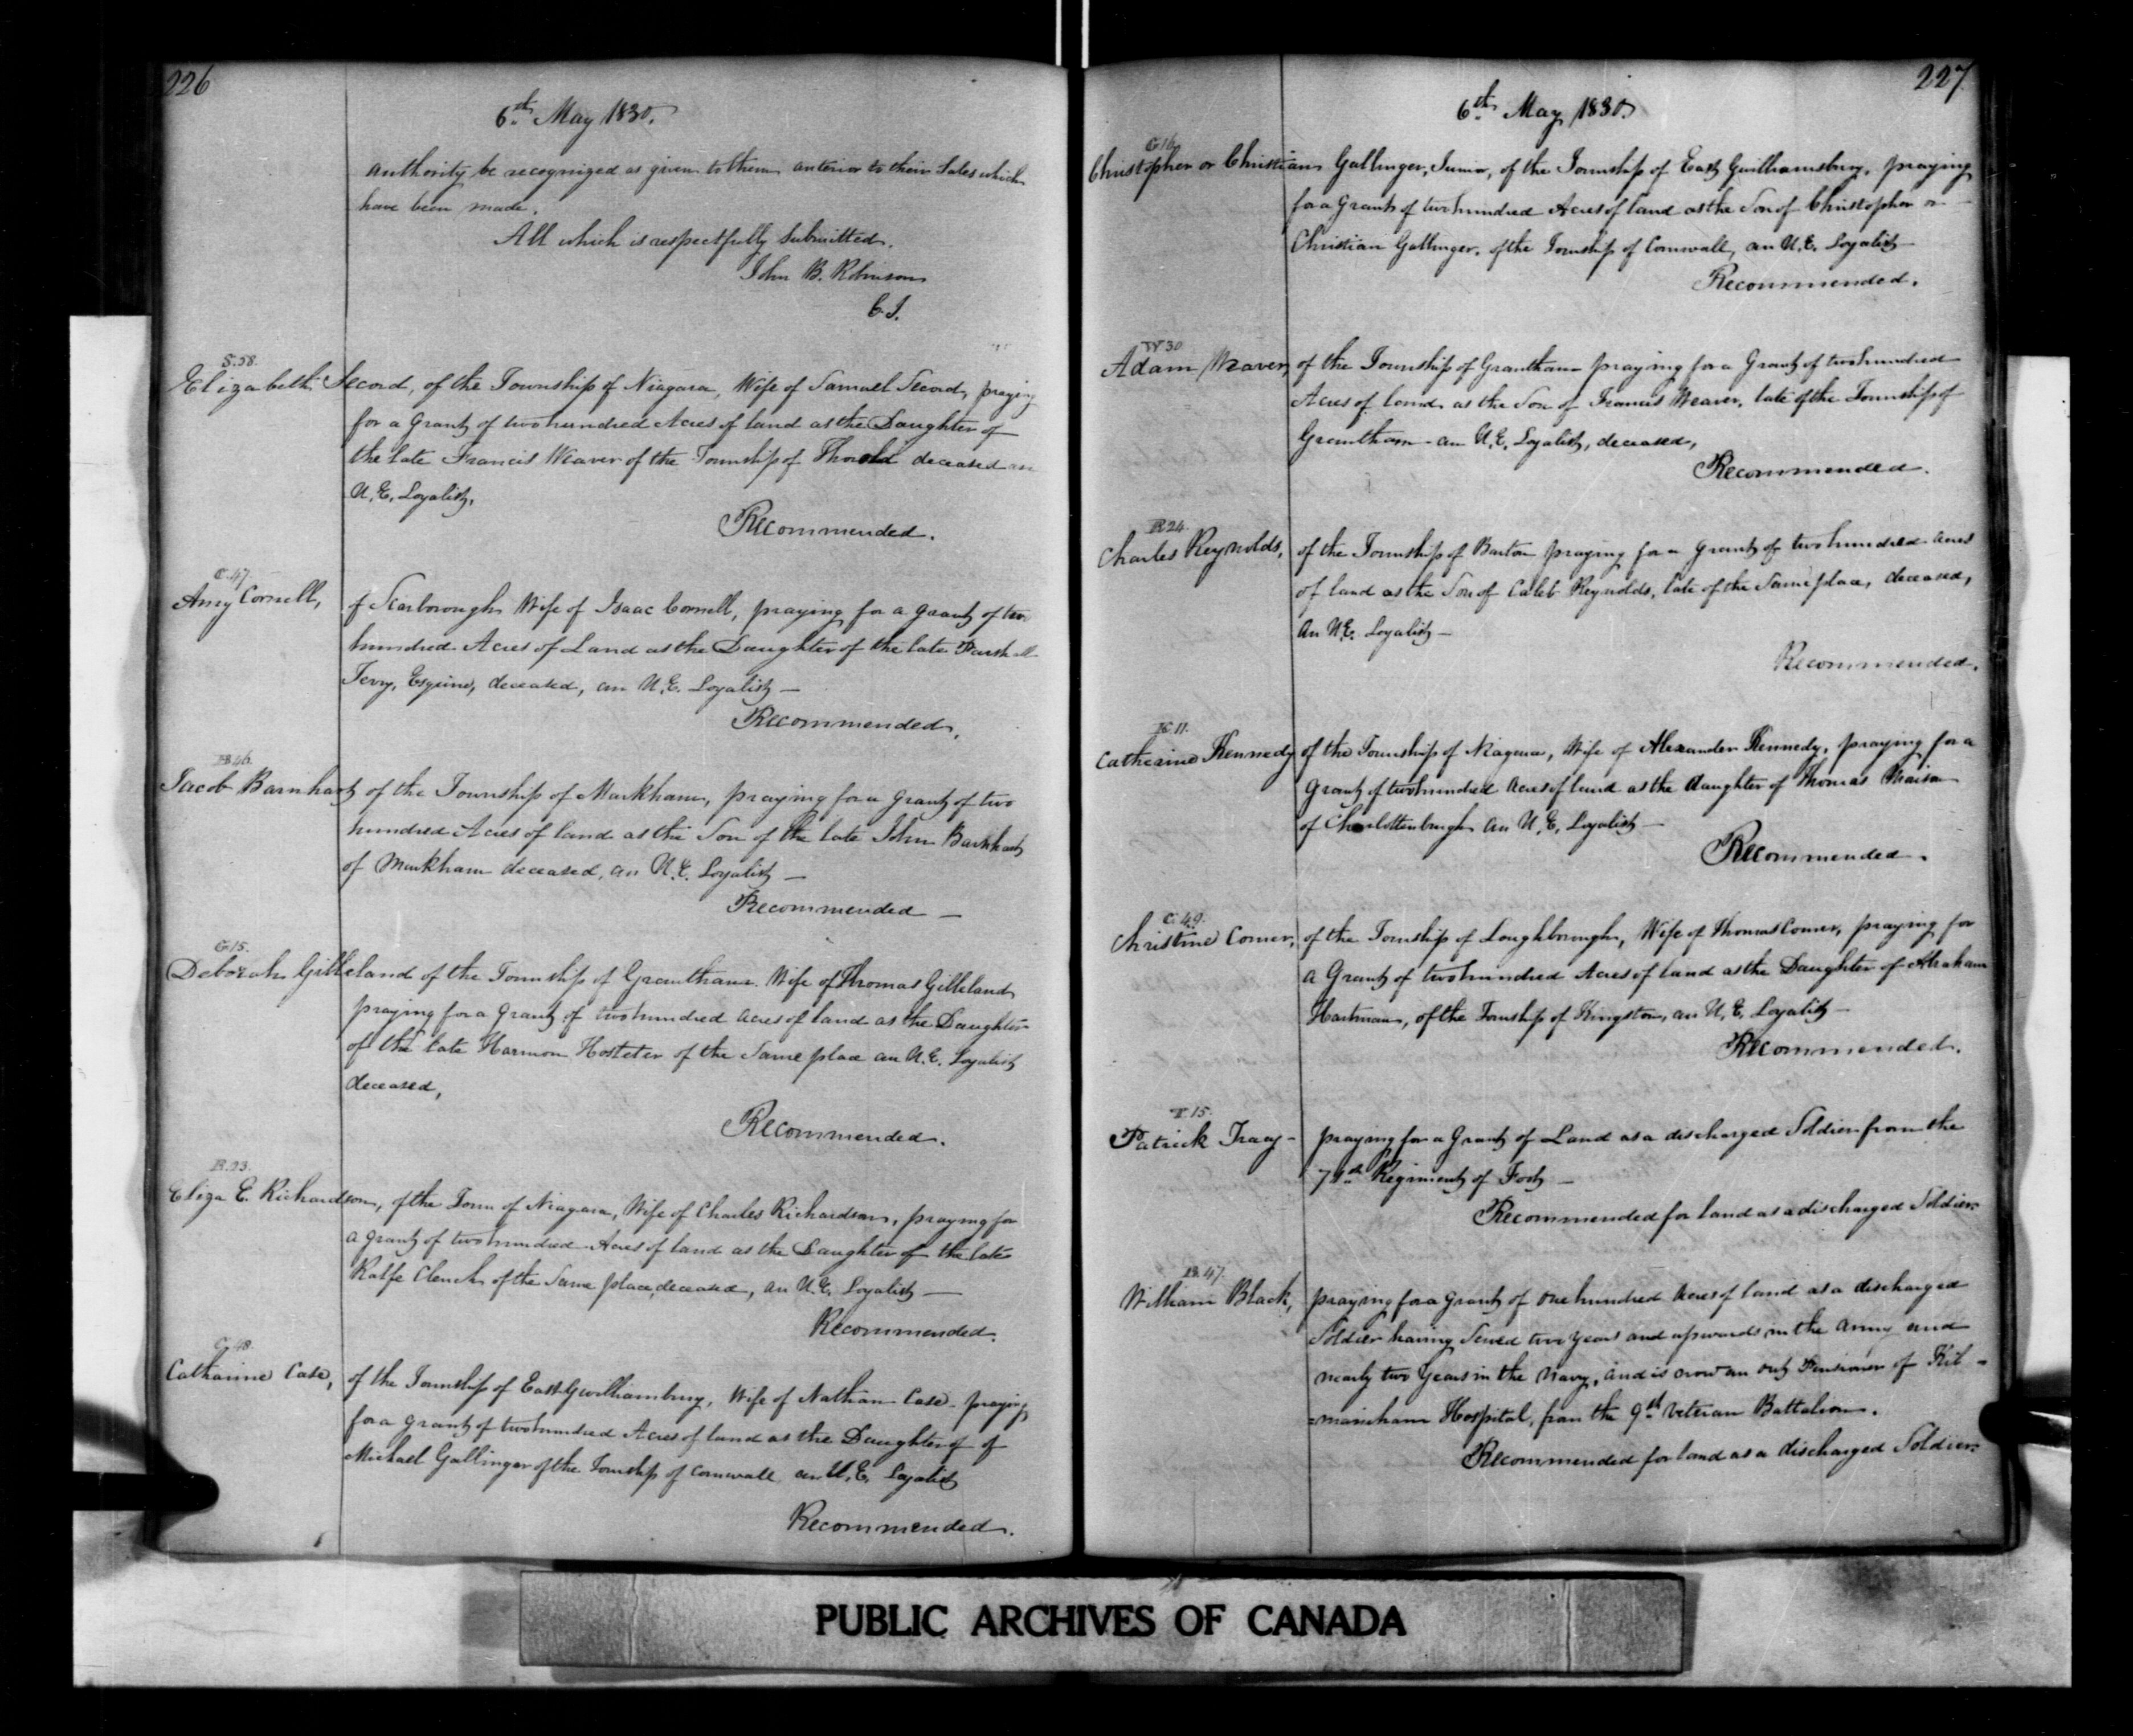 226
6th May 1830.
authority be recognized as given to them anterior to their Sales which
have been made.
All which is respectfully Submitted.
John B. Robinson
C.J.
S.58.
Elizabeth Secord, of the Township of Niagara, Wife of Samuel Secord, praying
for a Grant of two hundred Acres of land as the Daughter of
the late Francis Weaver of the Township of Thorold deceased an
U.E. Loyalist,
Recommended.
C.47.
Amy Cornell, of Scarborough Wife of Isaac Cornell, praying for a grant of two
hundred Acres of Land as the Daughter of the late Parshall
Terry, Esquire, deceased, an U.E. Loyalist —
Recommended,
B.46.
Jacob Barnhart of the Township of Markham, praying for a Grant of two
hundred Acres of land as the Son of the late John Barnhart
of Markham deceased, an U.E. Loyalist —
Recommended —
G.15.
Deborah Gilleland of the Township of Grantham. Wife of Thomas Gilleland
praying for a Grant of two hundred acres of land as the Daughter
of the late Harmon Hosteter of the Same place an U.E. Loyalist
deceased,
Recommended.
R.23.
Eliza E. Richardson, of the Town of Niagara, Wife of Charles Richardson, praying for
a grant of two hundred Acres of land as the Daughter of the late
Ralfe Clench of the Same place, deceased, an U.E. Loyalist —
Recommended.
C.48.
Catharine Case, of the Township of East Gwillimbury, Wife of Nathan Case - praying
for a Grant of two hundred Acres of land as the Daughter of of
Michael Gallinger of the Township of Cornwall an U.E. Loyalist
Recommended.
227
6th May 1830.
G.16.
Christopher or Christian Gallinger, Junior, of the Township of East Gwilliamsbury, praying
for a Grant of two hundred Acres of land as the Son of Christopher or
Christian Gallinger, of the Township of Cornwall, an U.E. Loyalist —
Recommended.
W.30.
Adam Weaver, of the Township of Grantham praying for a Grant of two hundred
Acres of land as the Son of Francis Weaver, late of the Township of
Grantham - an U.E. Loyalist, deceased,
Recommended.
R.24.
Charles Reynolds, of the Township of Barton praying for a grant of two hundred acres
of land as the Son of Caleb Reynolds, late of the Same place, deceased,
an U.E. Loyalist —
Recommended.
K.11.
Catherine Kennedy of the Township of Niagara, Wife of Alexander Kennedy, praying for a
Grant of two hundred acres of land as the daughter of Thomas
of Charlottenburgh an U.E. Loyalist —
Recommended.
C.49.
Christine Comer, of the Township of Loughborough, Wife of Thomas Comer, praying for
a Grant of two hundred Acres of land as the Daughter of Abraham
Hartman, of the Township of Kingston, an U.E. Loyalist —
Recommended.
T.15.
Patrick Tracy - praying for a Grant of Land as a discharged Soldier from the
Regiment of Foot —
Recommended for land as a discharged Soldier.
B.47.
William Black, praying for a grant of one hundred acres of land as a discharged
Soldier having Served two years and upwards in the army and
nearly two years in the navy, and is now an out Pensioner of Kil =
=mainham Hospital, from the 9th Veteran Battalion.
Recommended for land as a discharged Soldier.
PUBLIC ARCHIVES OF CANADA